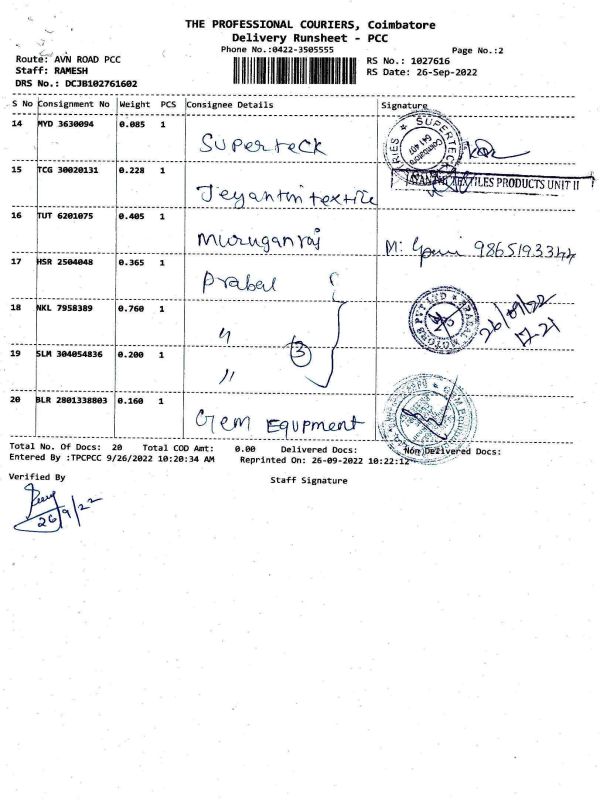 THE PROFESSIONAL COURIERS, Coimbatore
Delivery Runsheet - PCC
Phone No.:0422-3505555 Page No.:2
Route: AVN ROAD PCC RS No.: 1027616
Staff: RAMESH RS Date: 26-Sep-2022
DRS No.: DCJB102761602
S No Consignment No Weight PCS Consignee Details Signature
14 MYD 3630094 0.085 1 Superteck
SUPERTECK
Coimbatore
641 407
15 TCG 30020131 0.228 1 Jeyanthi textile
TEXTILES PRODUCTS UNIT II
16 TUT 6201075 0.405 1 Muruganraj M: 9865193344
17 HSR 2504048 0.365 1 Prabal
18 NKL 7958389 0.760 1 "
3
26/09/22
17-21
19 SLM 304054836 0.200 1 "
20 BLR 2801338803 0.160 1 Gem Equpment
Total No. Of Docs: 20 Total COD Amt: 0.00 Delivered Docs: Non Delivered Docs:
Entered By :TPCPCC 9/26/2022 10:20:34 AM Reprinted On: 26-09-2022 10:22:12
Verified By Staff Signature
26/9/22